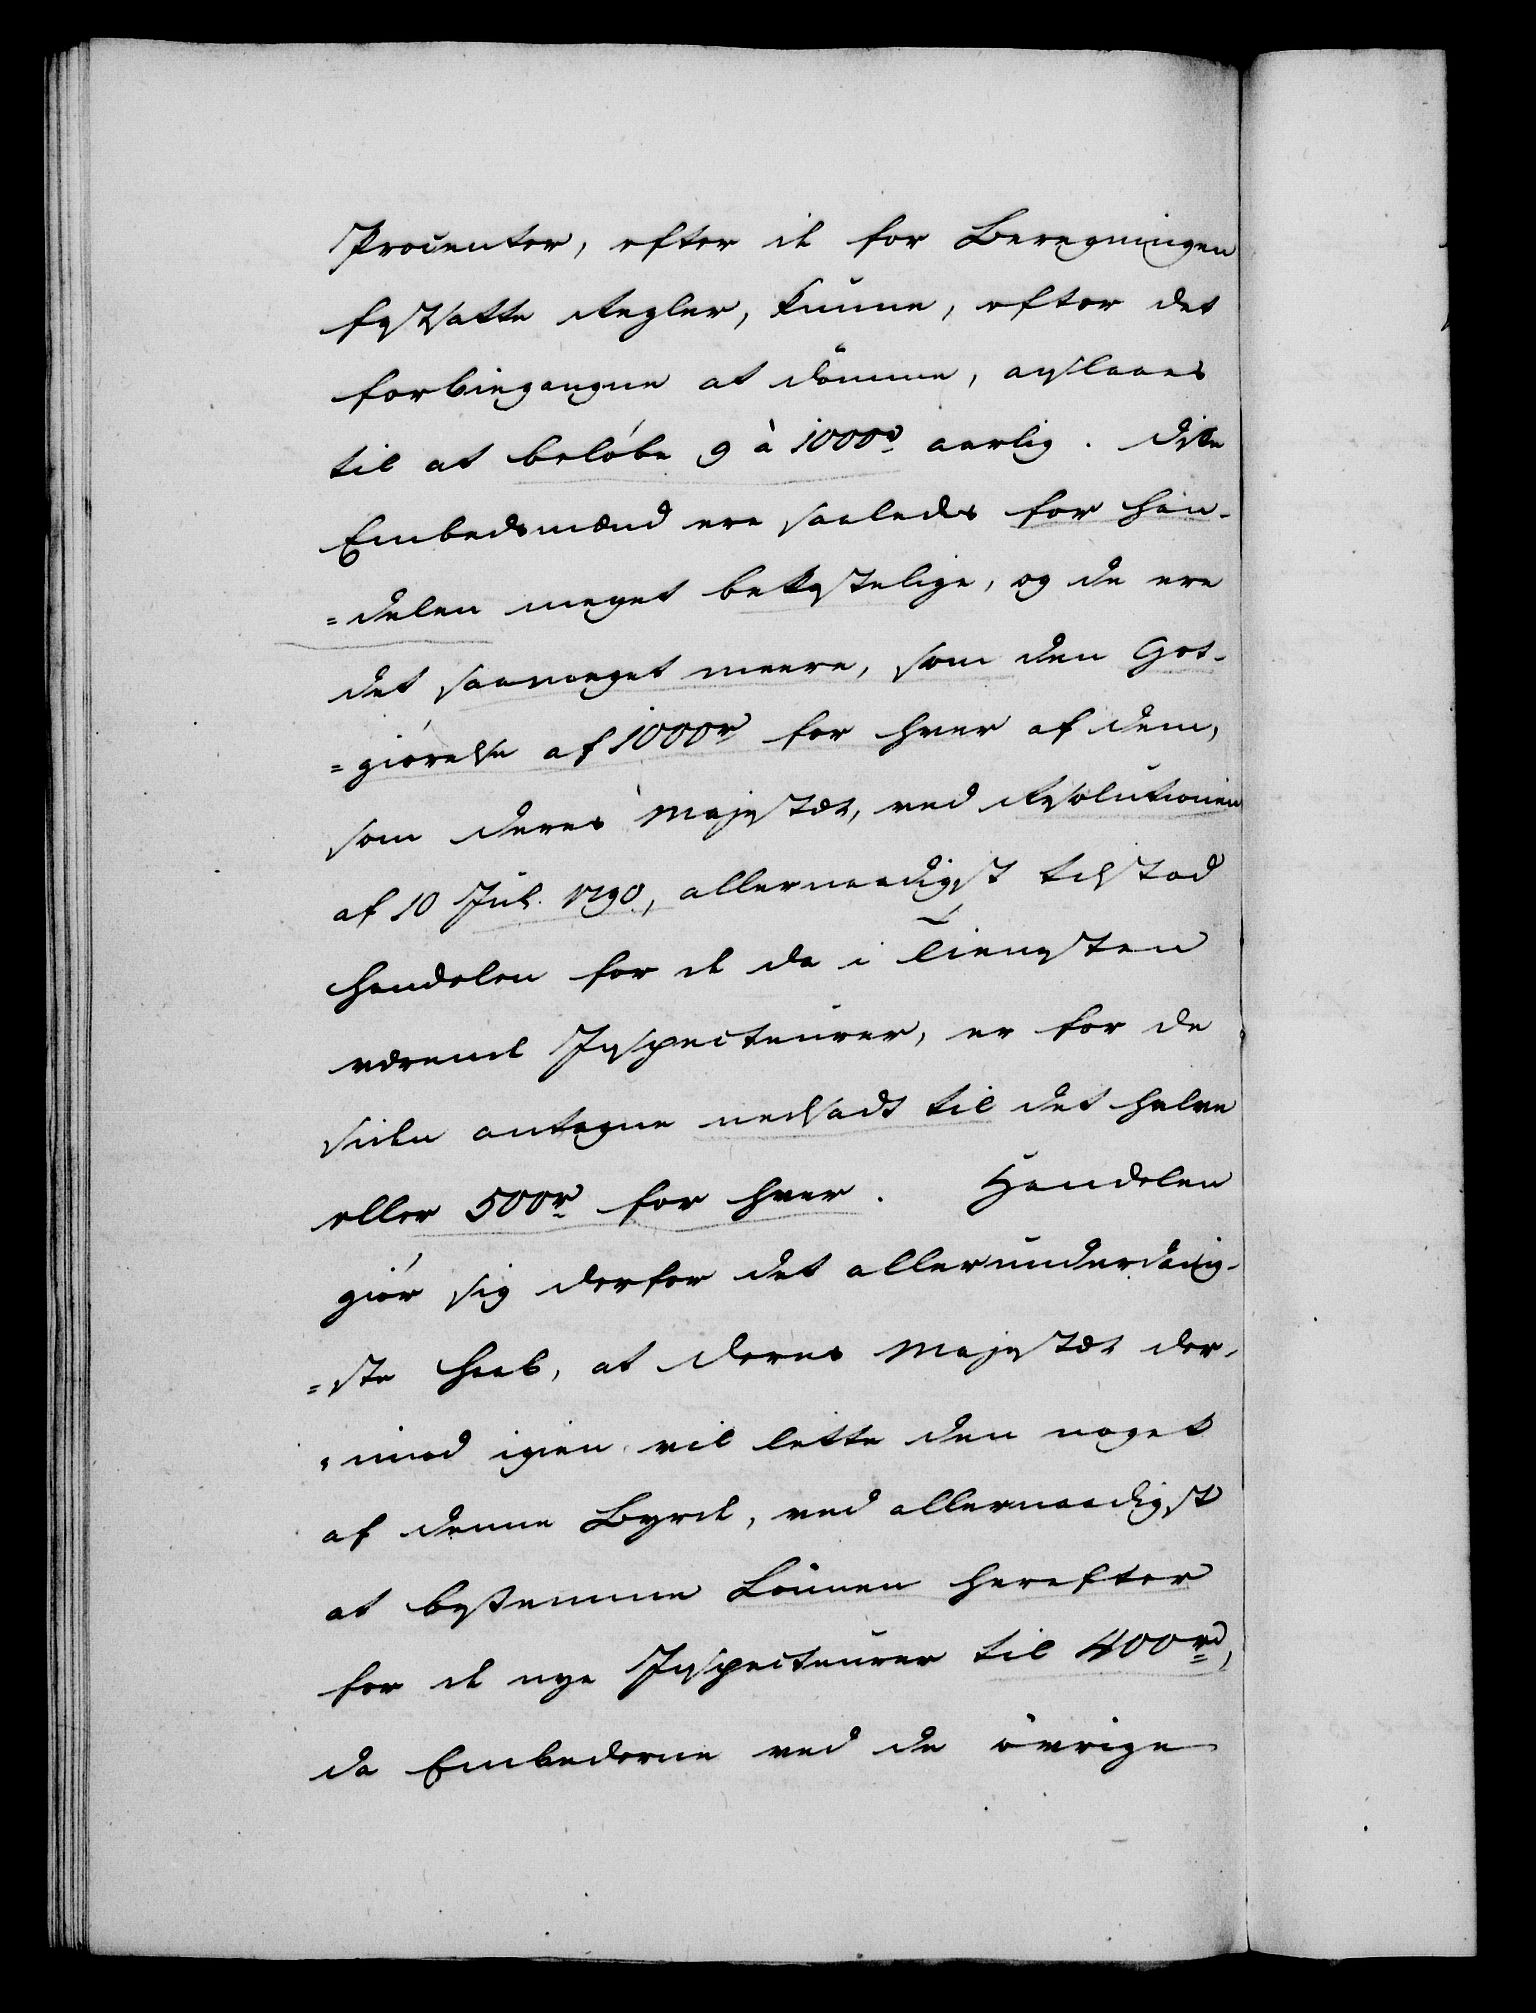 Procenter, efter de for Beregningen
fastsatte Regler, kunne, efter det
forbiegangne at dömme, anslaaes
til at belöbe 9 à 1000rd aarlig. Disse
Embedsmænd ere saaledes for Han-
=delen meget bekostelige, og de ere
det saameget meere, som den Got-
=giörelse af 1000rd for hver af dem,
som Deres Majestæt, ved Resolutionen
af 10 Jul. 1790, allernaadigst tilstod
Handelen for de da i Tienesten
værende Inspecteurer, er for de
siden antagne nedsadt til det halve
eller 500rd for hver. Handelen
giör sig derfor det allerunderdanig-
=ste Haab, at Deres Majestæt der-
=imod igien vil lette den noget
af denne Byrde, ved allernaadigst
at bestemme Lönnen herefter
for de nye Inspecteurer til 400rd,
da Embederne ved de övrige